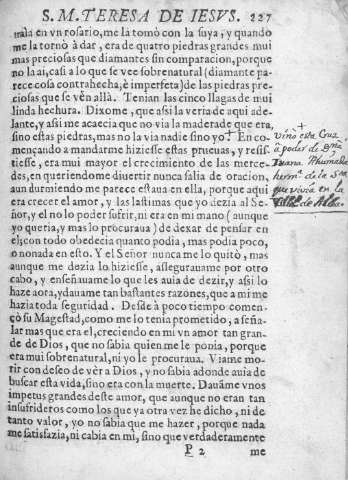 S. M. TERESA DE IESVS. 227
traìa en vn rosario, me la tomò con la suya, y quando
me la tornò à dar, era de quatro piedras grandes mui
mas preciosas que diamantes sin comparacion, porque
no la ai, casi a lo que se vee sobrenatural (diamante pa-
rece cosa contrahecha, è imperfeta) de las piedras pre-
ciosas que se vèn allà. Tenian las cinco llagas de mui
linda hechura. Dixome, que assi la veria de aqui ade-
lante, y assi me acaecia que no via la madera de que era,
sino estas piedras, mas no la via nadie sino yo+ En co-
mençando a mandarme hiziesse estas pruevas, y resis-
tiesse, era mui mayor el crecimiento de las merce-
des, en queriendome divertir nunca salia de oracion,
aun durmiendo me parece estaua en ella, porque aqui
era crecer el amor, y las lastimas que yo dezia al Se-
ñor, y el no lo poder sufrir, ni era en mi mano (aunque
yo queria, y mas lo procuraua) de dexar de pensar en
el; con todo obedecia quanto podia, mas podia poco,
o nonada en esto. Y el Señor nunca me lo quitò, mas
aunque me dezia lo hiziesse, assegurauame por otro
cabo, y enseñauame lo que les auia de dezir, y assi lo
haze aora, ydauame tan bastantes razones, que a mi me
hazia toda seguridad. Desde à poco tiempo comen-
çò su Magestad, como me lo tenia prometido, a seña-
lar mas que era el, creciendo en mi vn amor tan gran-
de de Dios, que no sabia quien me le ponia, porque
era mui sobrenatural, ni yo le procuraua. Viame mo-
rir con deseo de vèr a Dios, y no sabia adonde auia de
buscar esta vida, sino era con la muerte. Dauãme vnos
impetus grandes deste amor, que aunque no eran tan
insufrideros como los que ya otra vez he dicho, ni de
tanto valor, yo no sabia que me hazer, porque nada
me satisfazia, ni cabia en mi, sino que verdaderamente
P 2 me
+
vino esta Cruz
a poder de Dña
Juana Ahumada
hermª de la Sta
que vivia en la
de Alba